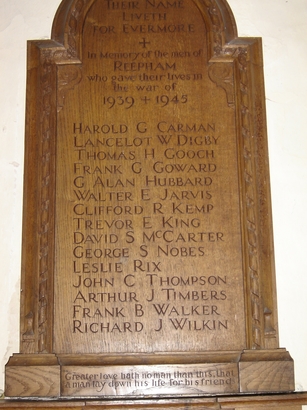 THEIR NAME
LIVETH
FOR EVERMORE
In Memory of the men of
REEPHAM
who gave their lives in
the war of
1939 + 1945
HAROLD G CARMAN
LANCELOT W DIGBY
THOMAS H GOOCH
FRANK G GOWARD
G ALAN HUBBARD
WALTER E JARVIS
CLIFFORD R KEMP
TREVOR E KING
DAVID S MCCARTER
GEORGE S NOBES
LESLIE RIX
JOHN C THOMPSON
ARTHUR J TIMBERS
FRANK B WALKER
RICHARD J WILKIN
Greater love hath no man than this, that
a man lay down his life for his friend